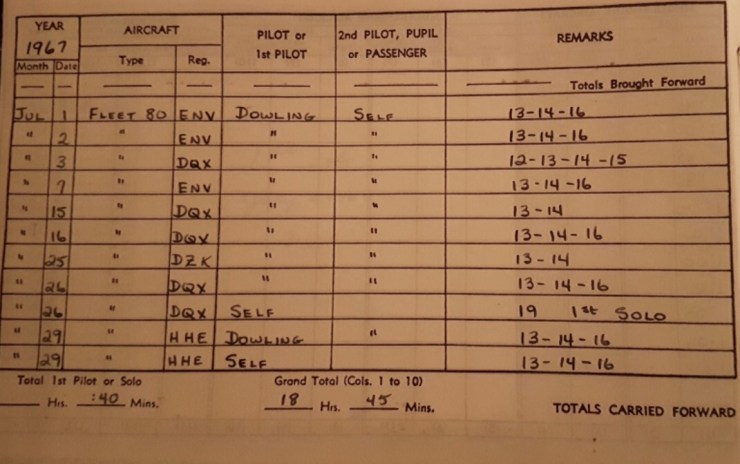 YEAR AIRCRAFT PILOT or 2nd PILOT, PUPIL REMARKS
1967 1st PILOT or PASSENGER
Month Date Type Reg.
— — — — — — — Totals Brought Forward
JUL 1 FLEET 80 ENV DOWLING SELF 13-14-16
" 2 " ENV " " 13-14-16
" 3 " DQX " " 12-13-14-15
" 7 " ENV " " 13-14-16
" 15 " DQX " " 13-14
" 16 " DQX " " 13-14-16
" 25 " DZK " " 13-14
" 26 " DQX " " 13-14-16
" 26 " DQX SELF 19 1st SOLO
" 29 " HHE DOWLING " 13-14-16
" 29 " HHE SELF 13-14-16
Total 1st Pilot or Solo Grand Total (Cols. 1 to 10)
Hrs. :40 Mins. 18 Hrs. 45 Mins. TOTALS CARRIED FORWARD